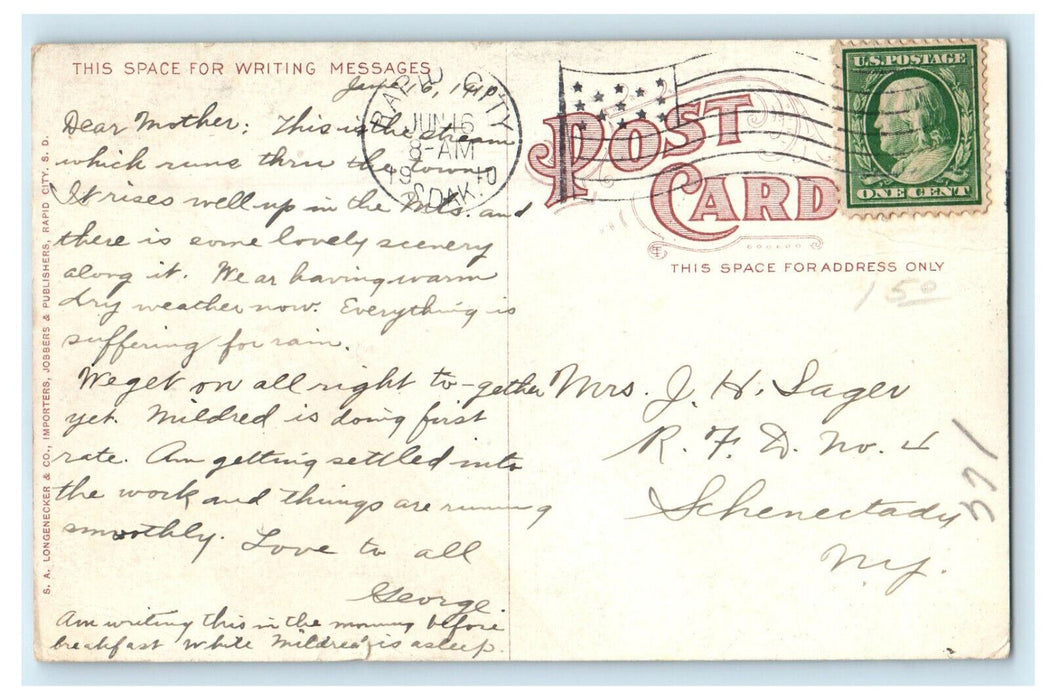 THIS SPACE FOR WRITING MESSAGES
June 16, 1910
Dear Mother; This is the stream
which runs thru the town
It rises well up in the Mts. and
there is some lovely scenery
along it. We ar having warm
dry weather now. Everything is
suffering for rain.
We get on all right to-gether
yet. Mildred is doing first
rate. Am getting settled into
the work and things are running
smoothly. Love to all
George.
Am writing this in the morning before
breakfast while Mildred is asleep.
S. A. LONGENECKER & CO., IMPORTERS, JOBBERS & PUBLISHERS, RAPID CITY, S. D.
RAPID CITY
JUN 16
8-AM
1910
S. DAK.
POST
CARD
U.S. POSTAGE
ONE CENT
THIS SPACE FOR ADDRESS ONLY
150
Mrs. J. H. Sager
R. F. D. No. 4
Schenectady
N.Y.